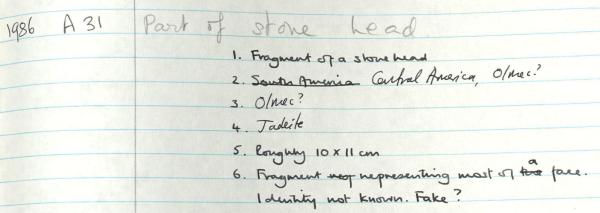 1986 A 31 Part of stone head
1. Fragment of a stone head
2. South America Central America, Olmec?
3. Olmec?
4. Jadeite
5. Roughly 10 x 11 cm
6. Fragment representing most of a face.
Identity not known. Fake?